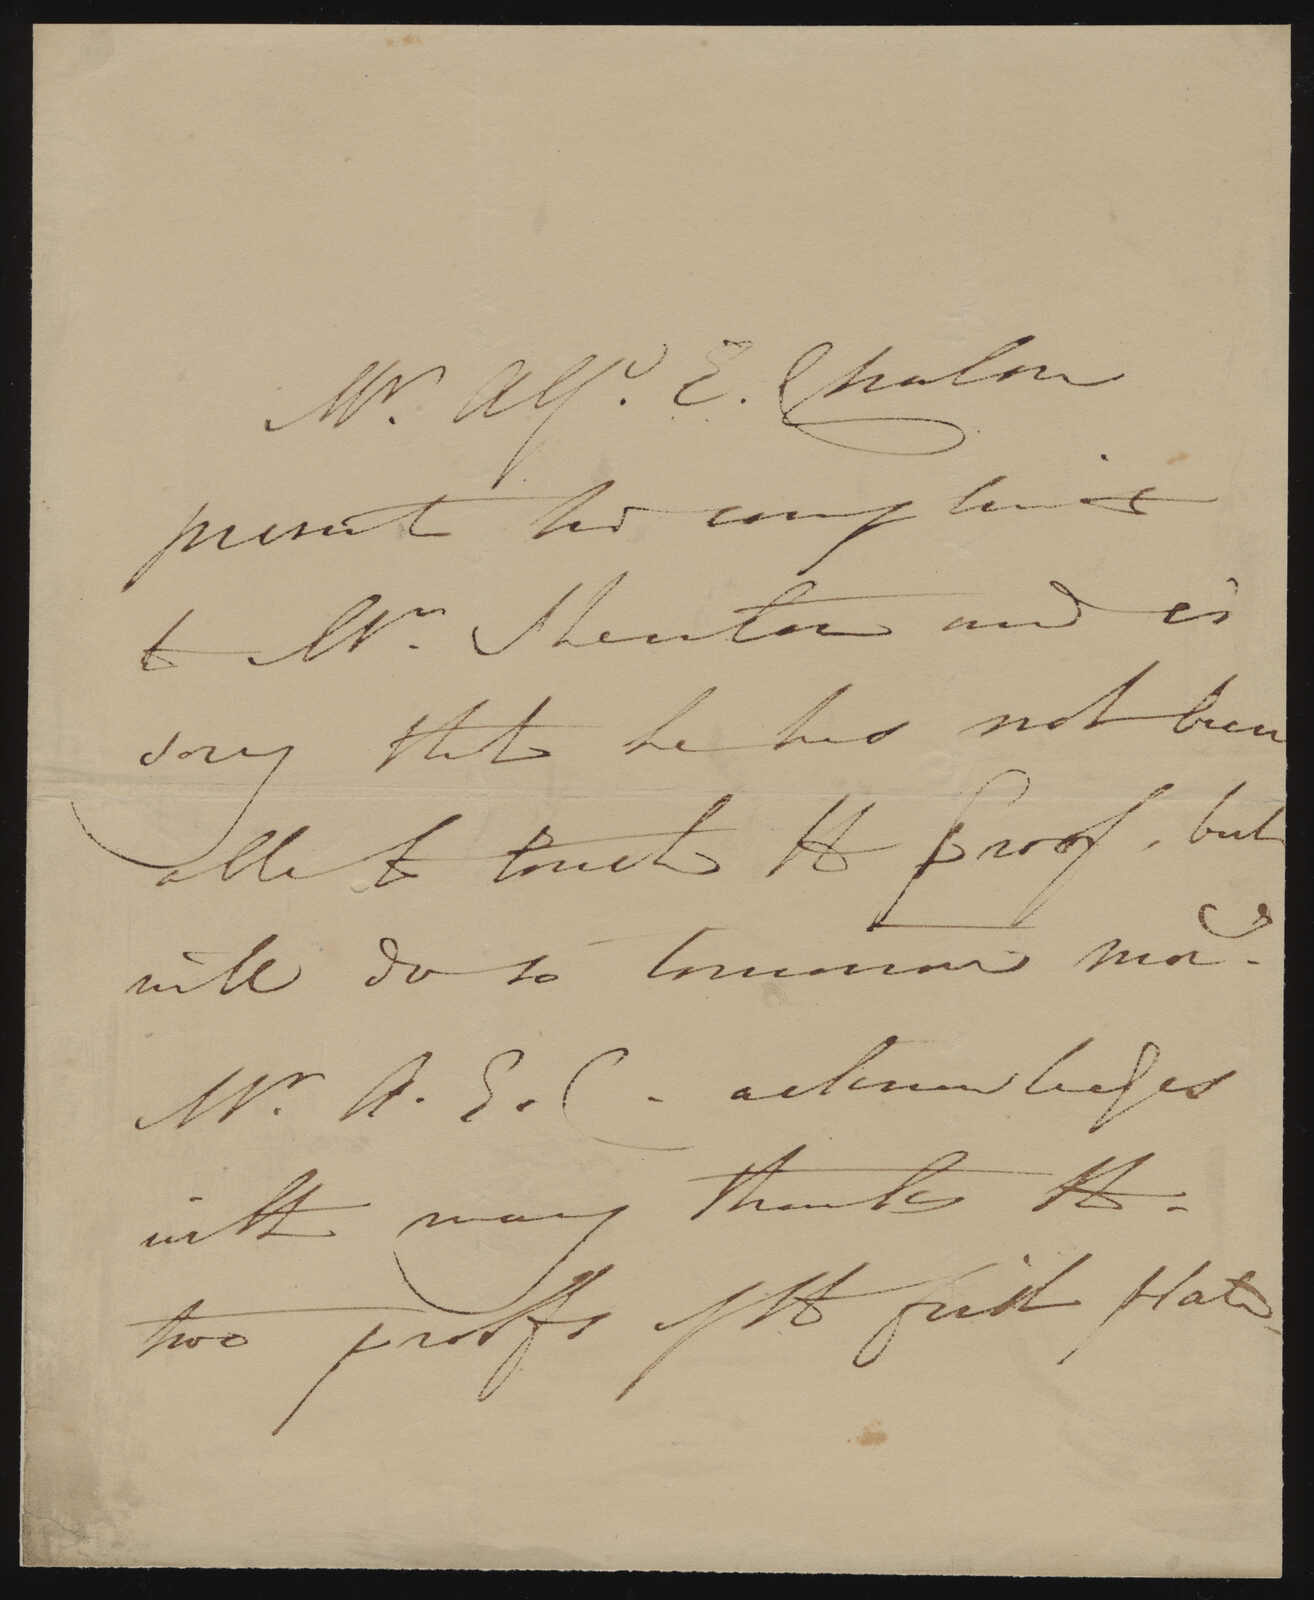 Mr. Alf.d E. Chalon
present his compliments
to Mr. Shenton and is
sorry that he has not been
able to touch the proof, but
will do so tomorrow mor.g
Mr. A. E. C. acknowledges
with many thanks the
two proofs of the plate